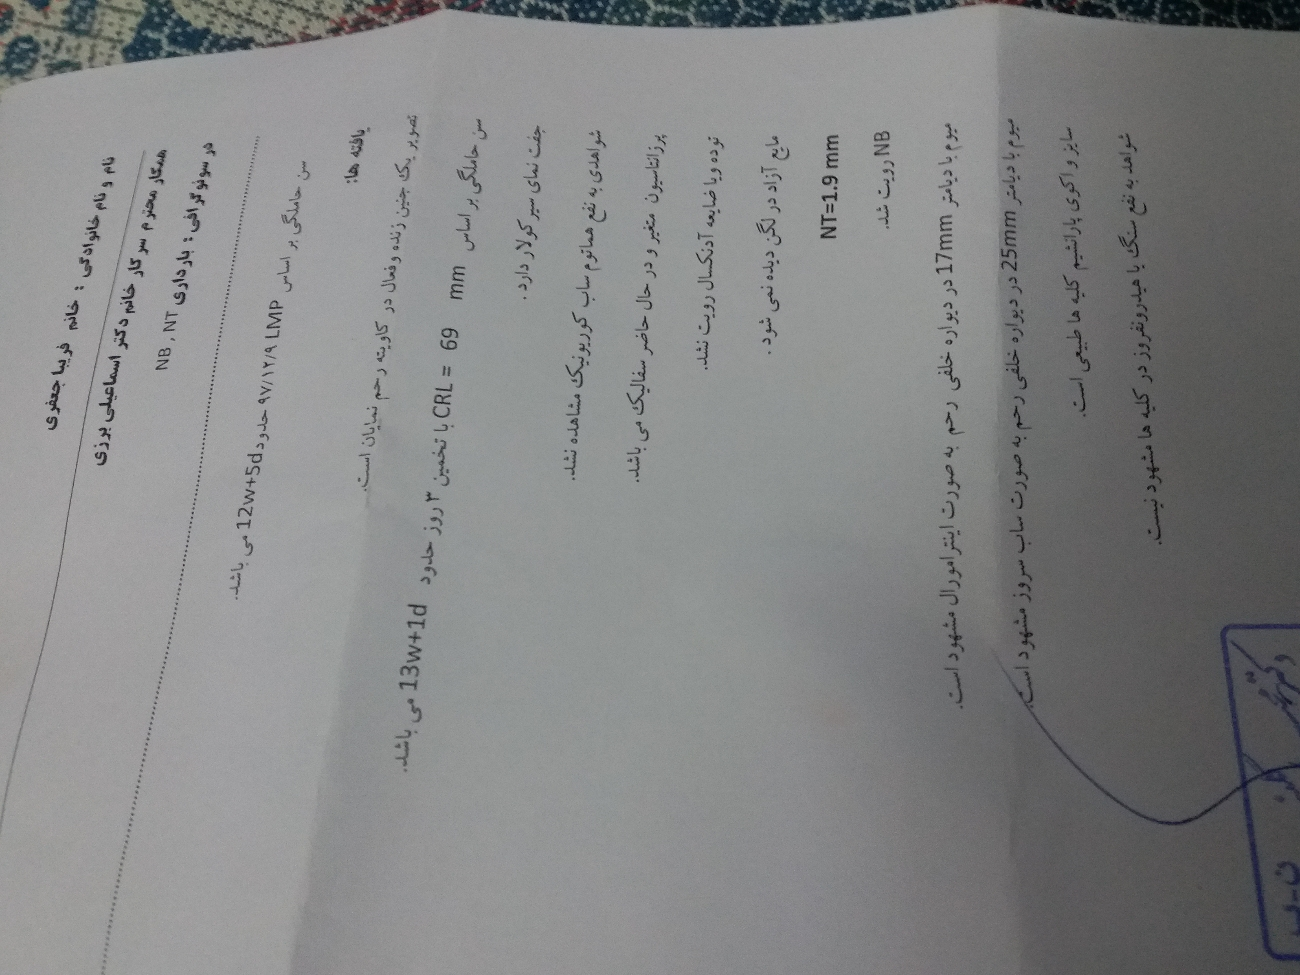 نام و نام خانوادگی : خانم فریبا جعفری
همکار محترم سرکار خانم دکتر اسماعیلی برزی
در سونوگرافی : بارداری NB , NT
سن حاملگی بر اساس LMP ۹۷/۱۲/۹ حدود 12w+5d می باشد.
یافته ها:
تصویر یک جنین زنده وفعال در کاویته رحم نمایان است.
سن حاملگی بر اساس CRL = 69 mm با تخمین ۳ روز حدود 13w+1d می باشد.
جفت نمای سیرکولار دارد .
شواهدی به نفع هماتوم ساب کوریونیک مشاهده نشد.
پرزانتاسیون متغیر و در حال حاضر سفالیک می باشد.
توده ویا ضایعه آدنکسال رویت نشد.
مایع آزاد در لگن دیده نمی شود .
NT=1.9 mm
NB رویت شد.
میوم با دیامتر 17mm در دیواره خلفی رحم به صورت اینترامورال مشهود است.
میوم با دیامتر 25mm در دیواره خلفی رحم به صورت ساب سروز مشهود است.
سایز و اکوی پارانشیم کلیه ها طبیعی است.
شواهد به نفع سنگ یا هیدرونفروز در کلیه ها مشهود نیست.